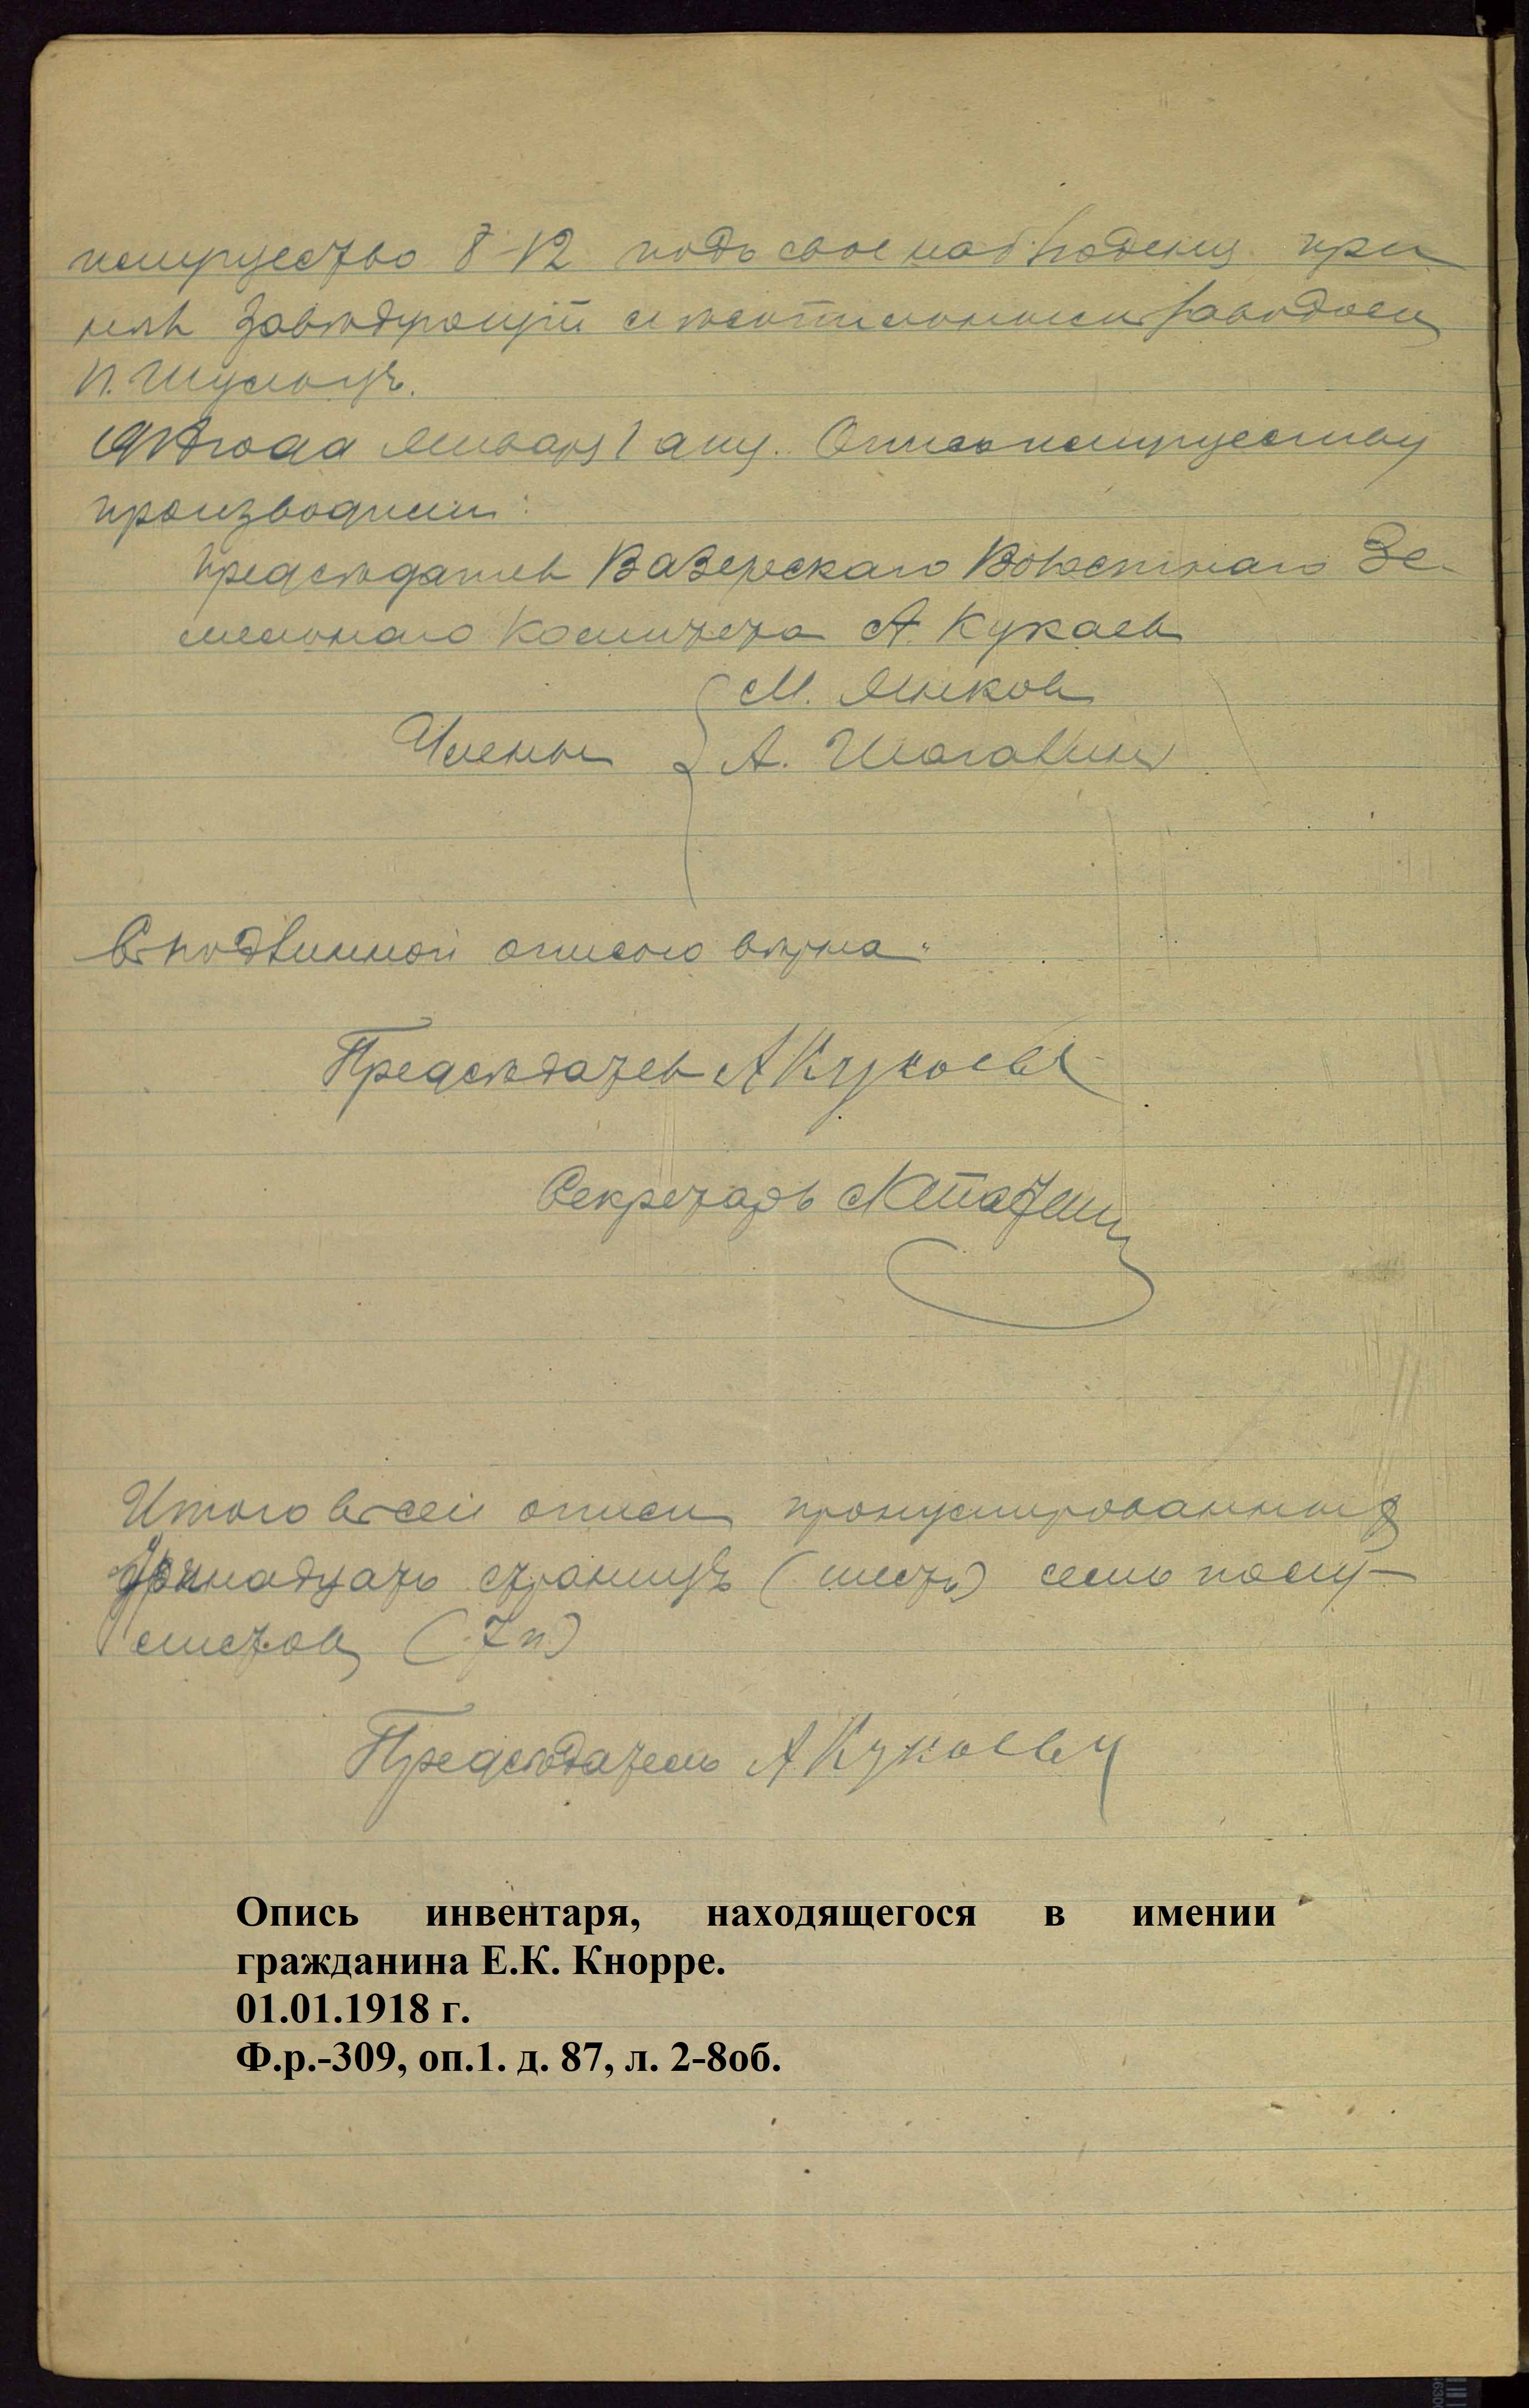 имущество 8-12 подъ свое наблюдение при
нялъ Завѣдующiй заводомъ
п. Шульцъ.
года Января 1 дня. Опись имуществу
производили:
Предсѣдатель Вазерскаго Волостнаго Зе-
мельнаго Комитета А. Кукаев
М. Янков
Члены А. Шагавин
С подлинной описью вѣрна
Предсѣдатель А Кукаевъ
Секретарь
Итого в сей описи пронумерованных
тринадцать страницъ (шесть) семь полу-
листов (7 п)
Предсѣдатель А Кукаевъ
Опись инвентаря, находящегося в имении
гражданина Е.К. Кнорре.
01.01.1918 г.
Ф.р.-309, оп.1. д. 87, л. 2-8об.